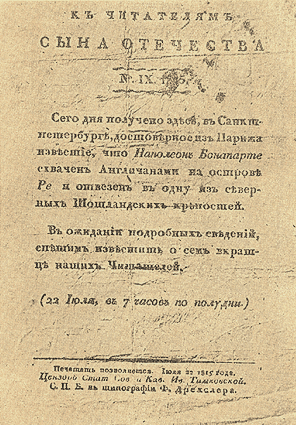 КЪ ЧИТАТЕЛЯМЪ
СЫНА ОТЕЧЕСТВА
№. IX.
Сего дня получено здѣсь, въ Санкт-
петербургѣ, достовѣрное изъ Парижа
извѣстіе, что Наполеонъ Бонапарте
схваченъ Англичанами на островѣ
Ре и отвезенъ въ одну изъ сѣвер-
ныхъ Шотландскихъ крѣпостей.
Въ ожиданіи подробныхъ свѣденій,
спѣшимъ извѣстить о семъ вкрат-
цѣ нашихъ Читателей.
(22 Іюля, въ 7 часовъ по полудни.)
Печатать позволяется. Іюля 22 1815 года.
Цензоръ Стат. Сов. и Кав. Ив. Тимковской.
С. П. Б. въ типографіи Ф. Дрехслера.